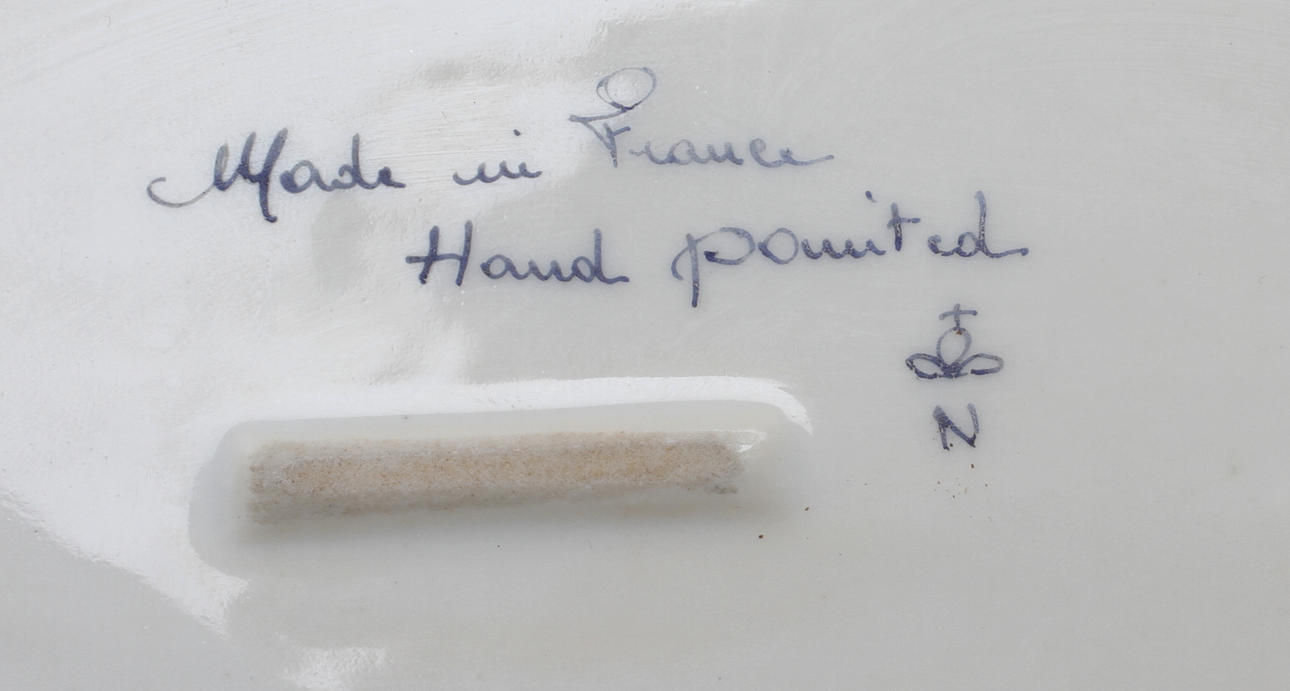 Made in France
Hand painted
N